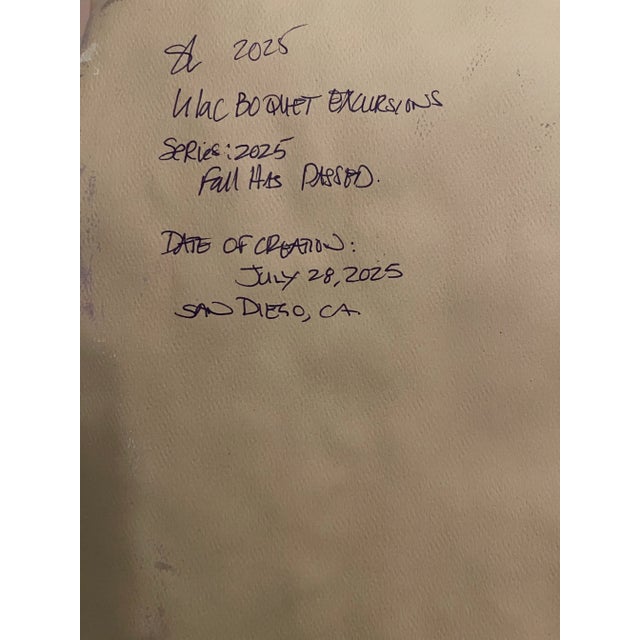 2025
Lilac BOQUET EXCURSIONS
SERIES: 2025
Fall HAS PASSED.
DATE OF CREATION:
JULY 28, 2025
SAN DIEGO, CA